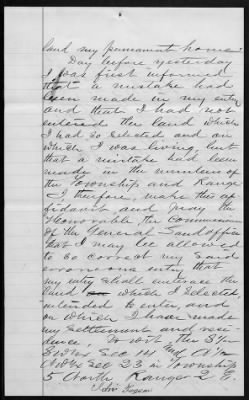 land my permanent home.
Day before yesterday
I was first informed
that a mistake had
been made in my entry
and that I had not
entered the land which
I had so selected and on
which I was living, but
that a mistake had been
made in the numbers of
the Township and Range
I therefore, make this af-
fidavit and pray the
Honorable the Commissioner
of the General Land office
that I may be allowed
to so correct my said
erroneous entry that
my entry shall embrace the
land which I selected,
intended to enter, and
on which I have made
my settlement and resi-
dence, to wit, the S½
SW¼ Sec 14 and N½
NW¼ Sec 23 in Township
5 North Range 2 E.